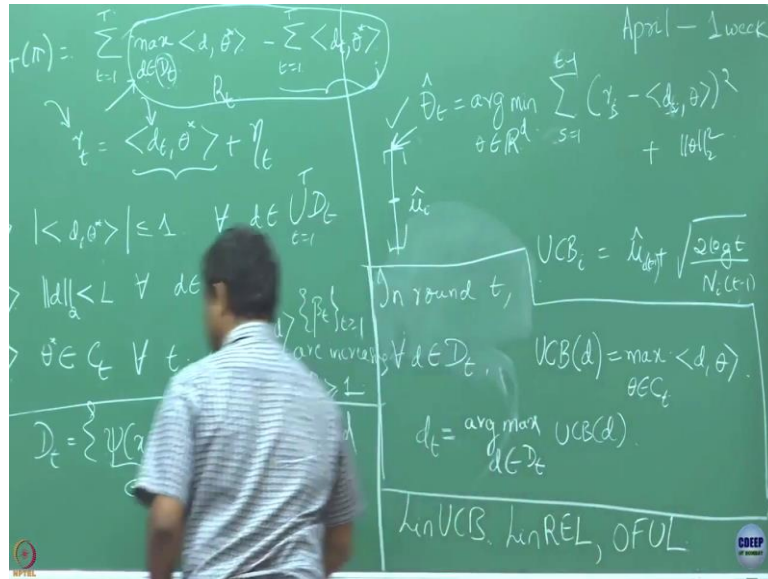 _T(π) = Σ_{t=1}^{T} max_{d∈D_t} <d, θ*> - Σ_{t=1}^{T} <d_t, θ*>
R_t
r_t = <d_t, θ*> + η_t
|<d, θ*>| ≤ 1 ∀ d∈ ∪_{t=1}^{T} D_t
||d||_2 < L ∀ d∈
{β_t}_{t=1}
θ* ∈ C_t ∀ t
are increasing
≥ 1
D_t = { ψ(x
April - 1 week
θ̂_t = arg min_{θ∈R^d} Σ_{s=1}^{t-1} (r_s - <d_s, θ>)²
+ ||θ||_2^2
μ̂_i
UCB_i = μ̂ √(2 log t / N_i(t-1))
In round t,
∀ d∈D_t, UCB(d) = max_{θ∈C_t} <d, θ>.
d_t = arg max_{d∈D_t} UCB(d).
LinUCB. LinREL, OFUL
NPTEL
CDEEP
IIT BOMBAY